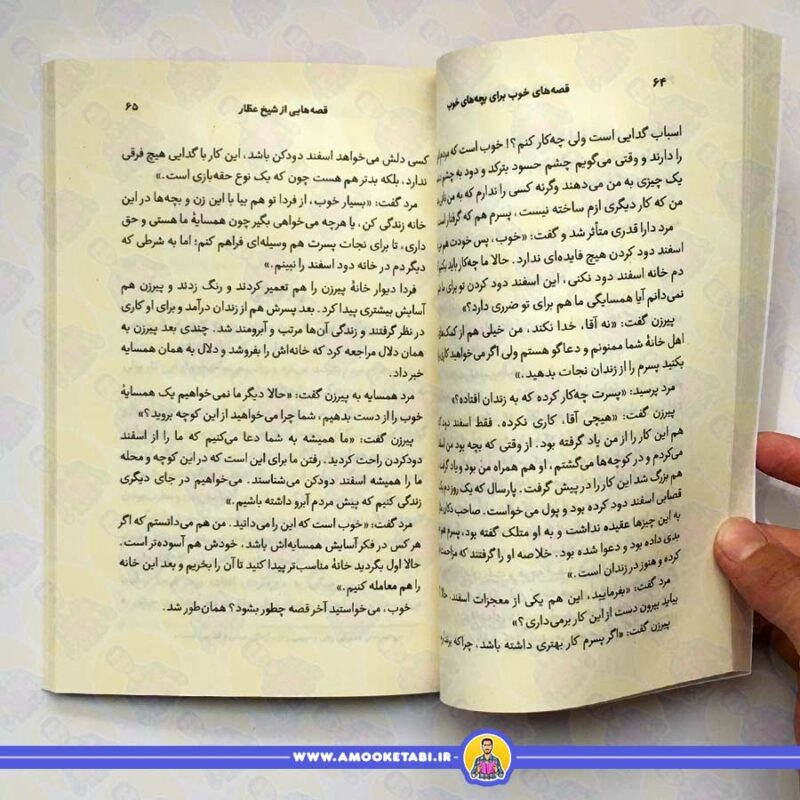 ۶۴
قصه‌های خوب برای بچه‌های خوب
اسباب گدایی است ولی چه‌کار کنم؟! خوب است که
را دارند و وقتی می‌گویم چشم حسود بترکد و دود به
یک چیزی به من می‌دهند وگرنه کسی را ندارم که به من
من که کار دیگری ازم ساخته نیست، پسرم هم که گرفتار
مرد دارا قدری متأثر شد و گفت: «خوب، پس خودت هم
اسفند دود کردن هیچ فایده‌ای ندارد. حالا ما چه‌کار باید
دم خانه اسفند دود نکنی، این اسفند دود کردن تو برای ما
نمی‌دانم آیا همسایگی ما هم برای تو ضرری دارد؟»
پیرزن گفت: «نه آقا، خدا نکند، من خیلی هم از
اهل خانهٔ شما ممنونم و دعاگو هستم ولی اگر می‌خواهید کاری
بکنید پسرم را از زندان نجات بدهید.»
مرد پرسید: «پسرت چه‌کار کرده که به زندان افتاده؟»
پیرزن گفت: «هیچی آقا، کاری نکرده. فقط اسفند دود
هم این کار را از من یاد گرفته بود. از وقتی که بچه بود من
می‌کردم و در کوچه‌ها می‌گشتم، او هم همراه من بود و یاد
هم بزرگ شد این کار را در پیش گرفت. پارسال که یک روز دم
قصابی اسفند دود کرده بود و پول می‌خواست. صاحب
به این چیزها عقیده نداشت و به او متلک گفته بود، پسرم هم
بدی داده بود و دعوا شده بود. خلاصه او را گرفتند که
کرده و هنوز در زندان است.»
مرد گفت: «بفرمایید، این هم یکی از معجزات اسفند،
بیاید بیرون دست از این کار برمی‌داری؟»
پیرزن گفت: «اگر پسرم کار بهتری داشته باشد، چراکه
قصه‌هایی از شیخ عطار
۶۵
کسی دلش می‌خواهد اسفند دودکن باشد، این کار با گدایی هیچ فرقی
ندارد، بلکه بدتر هم هست چون که یک نوع حقه‌بازی است.»
مرد گفت: «بسیار خوب، از فردا تو هم بیا با این زن و بچه‌ها در این
خانه زندگی کن، یا هرچه می‌خواهی بگیر چون همسایهٔ ما هستی و حق
داری، تا برای نجات پسرت هم وسیله‌ای فراهم کنم؛ اما به شرطی که
دیگر دم در خانه دود اسفند را نبینم.»
فردا دیوار خانهٔ پیرزن را هم تعمیر کردند و رنگ زدند و پیرزن هم
آسایش بیشتری پیدا کرد. بعد پسرش هم از زندان درآمد و برای او کاری
در نظر گرفتند و زندگی آن‌ها مرتب و آبرومند شد. چندی بعد پیرزن به
همان دلال مراجعه کرد که خانه‌اش را بفروشد و دلال به همان همسایه
خبر داد.
مرد همسایه به پیرزن گفت: «حالا دیگر ما نمی‌خواهیم یک همسایهٔ
خوب را از دست بدهیم، شما چرا می‌خواهید از این کوچه بروید؟»
پیرزن گفت: «ما همیشه به شما دعا می‌کنیم که ما را از اسفند
دودکردن راحت کردید. رفتن ما برای این است که در این کوچه و محله
ما را همیشه اسفند دودکن می‌شناسند. می‌خواهیم در جای دیگری
زندگی کنیم که پیش مردم آبرو داشته باشیم.»
مرد گفت: «خوب است که این را می‌دانید. من هم می‌دانستم که اگر
هر کس در فکر آسایش همسایه‌اش باشد، خودش هم آسوده‌تر است.
حالا اول بگردید خانهٔ مناسب‌تر پیدا کنید تا آن را بخریم و بعد این خانه
را هم معامله کنیم.»
خوب، می‌خواستید آخر قصه چطور بشود؟ همان‌طور شد.
WWW.AMOOKETABI.IR